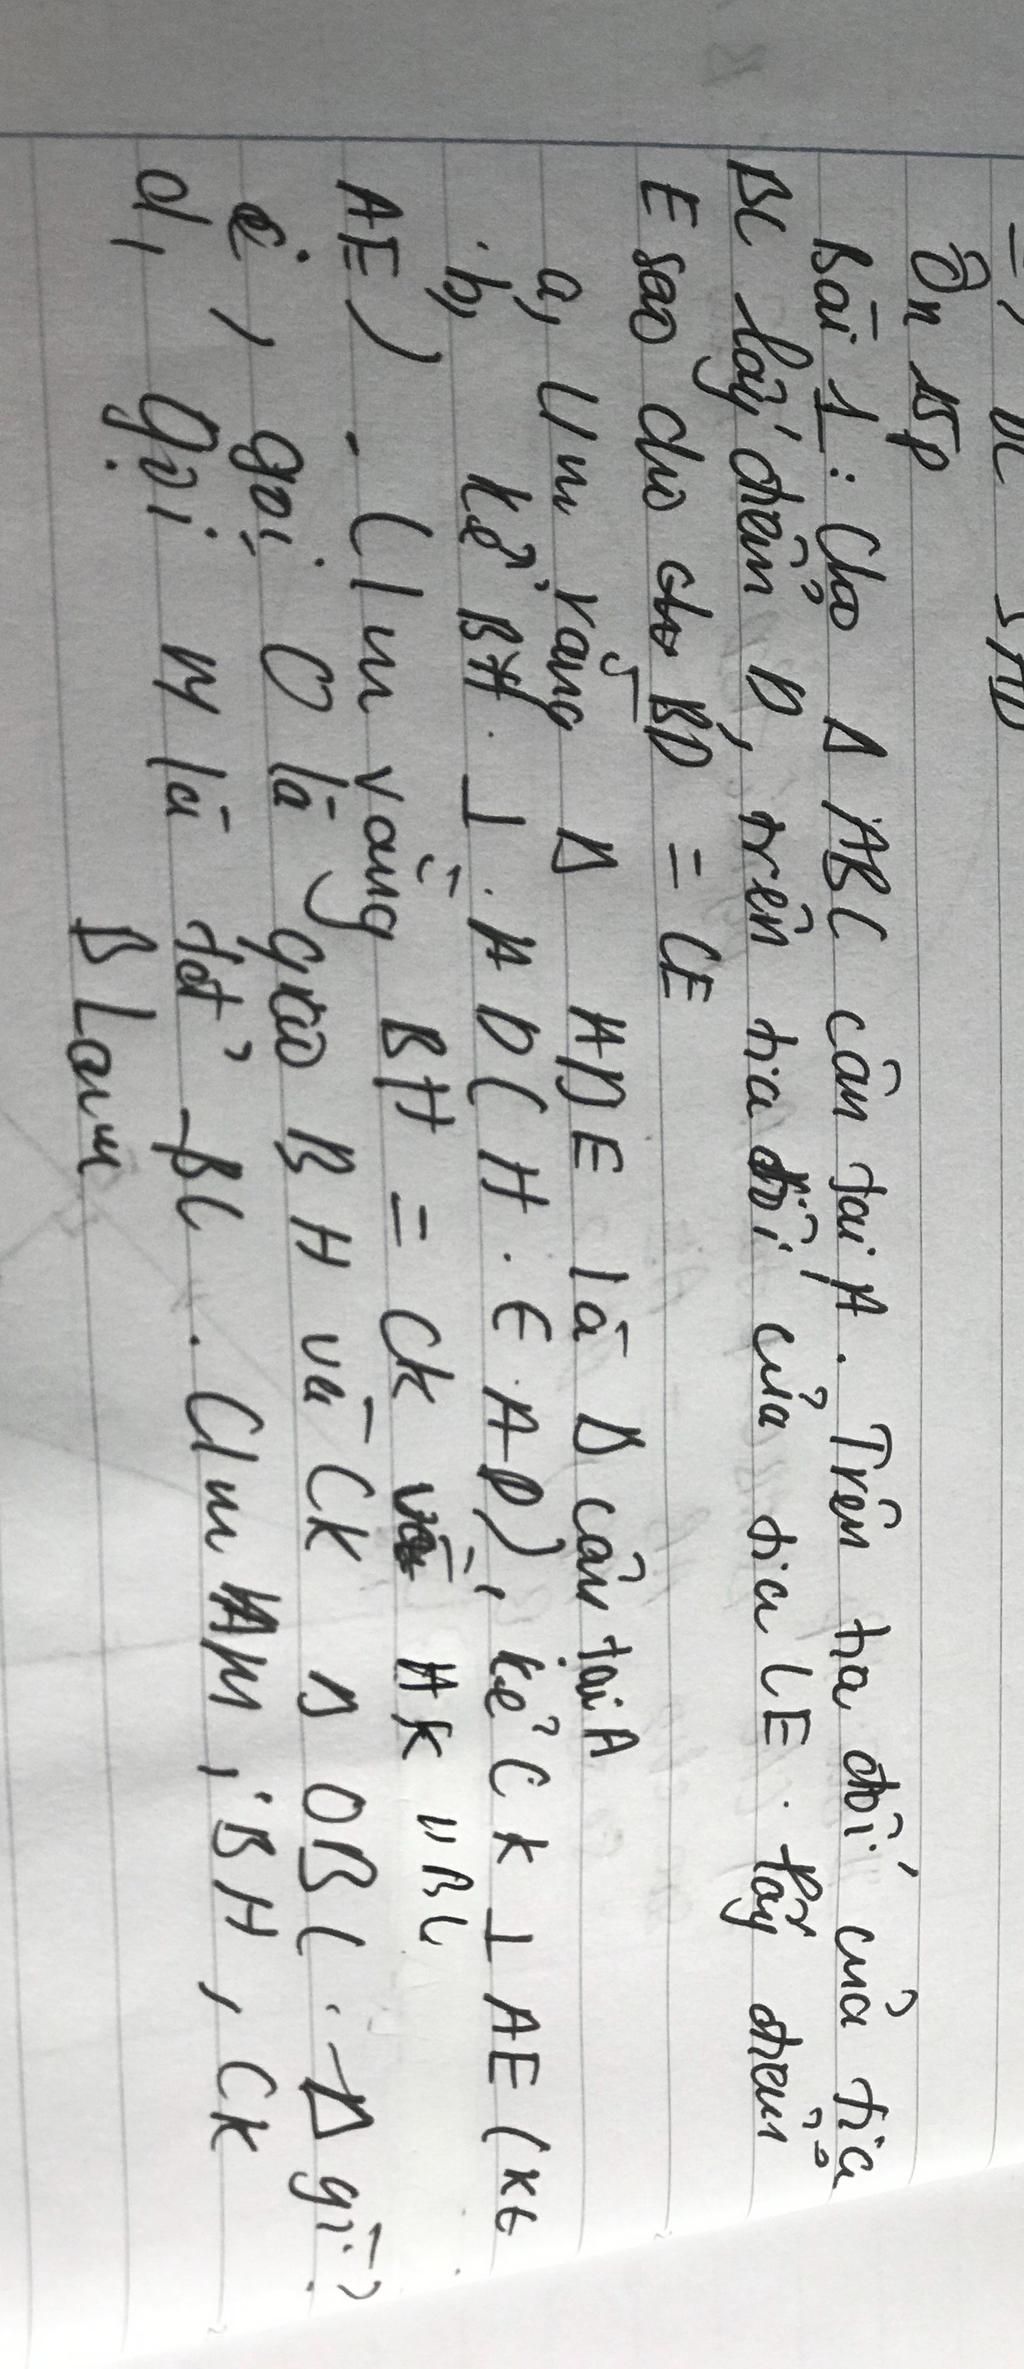 Ôn tập
Bài 1: Cho Δ ABC cân tại A. Trên tia đối của tia
BC lấy điểm D, trên tia đối của tia CE. lấy điểm
E sao cho BD = CE
a, Cm rằng Δ ADE là Δ cân tại A
b, kẻ BH ⊥ AD (H ∈ AD), kẻ CK ⊥ AE (K ∈
AE). Cm rằng BH = CK và HK // BC
c, gọi O là giao BH và CK Δ OBC. Δ gì?
d, Gọi M là tđ BC. Cm AM, BH, CK